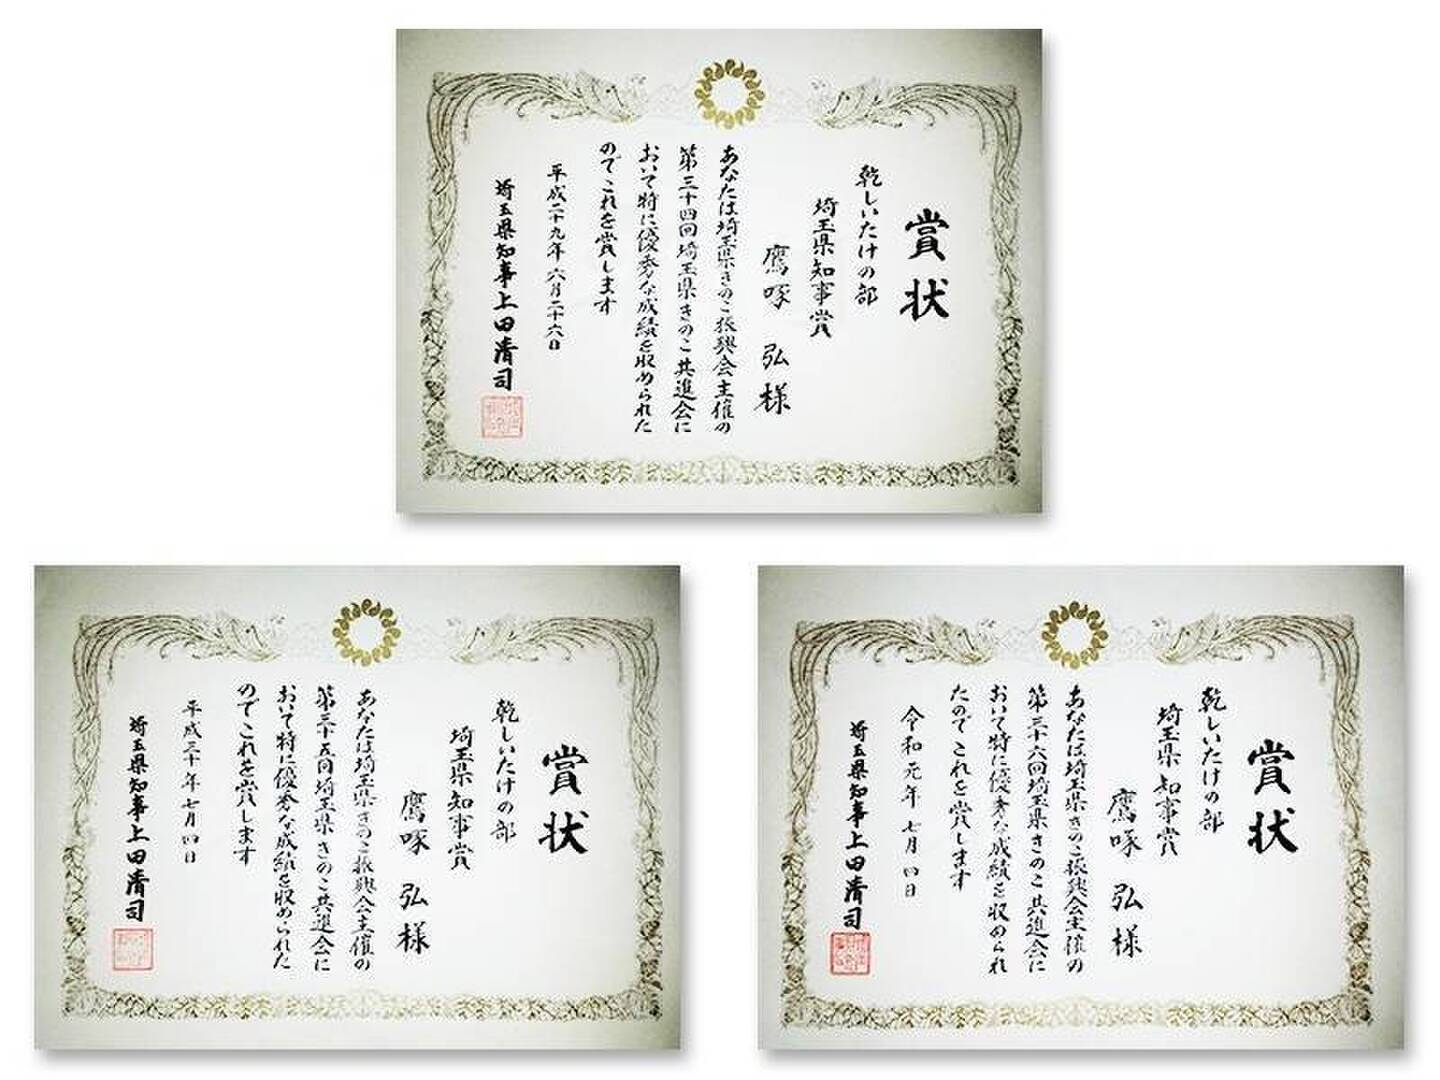 賞状
乾しいたけの部
埼玉県知事賞
鷹啄 弘 様
あなたは埼玉県きのこ振興会主催の
第三十四回埼玉県きのこ共進会に
おいて特に優秀な成績を収められた
のでこれを賞します
平成二十九年六月二十六日
埼玉県知事上田清司
賞状
乾しいたけの部
埼玉県知事賞
鷹啄 弘 様
あなたは埼玉県きのこ振興会主催の
第三十五回埼玉県きのこ共進会に
おいて特に優秀な成績を収められた
のでこれを賞します
平成三十年七月四日
埼玉県知事上田清司
賞状
乾しいたけの部
埼玉県知事賞
鷹啄 弘 様
あなたは埼玉県きのこ振興会主催の
第三十六回埼玉県きのこ共進会に
おいて特に優秀な成績を収められ
たのでこれを賞します
令和元年七月四日
埼玉県知事上田清司